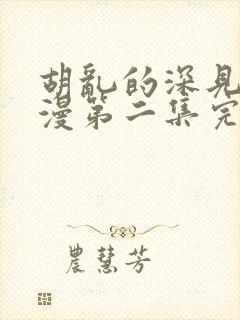 胡乱的深见
漫第二集完
農慧芳